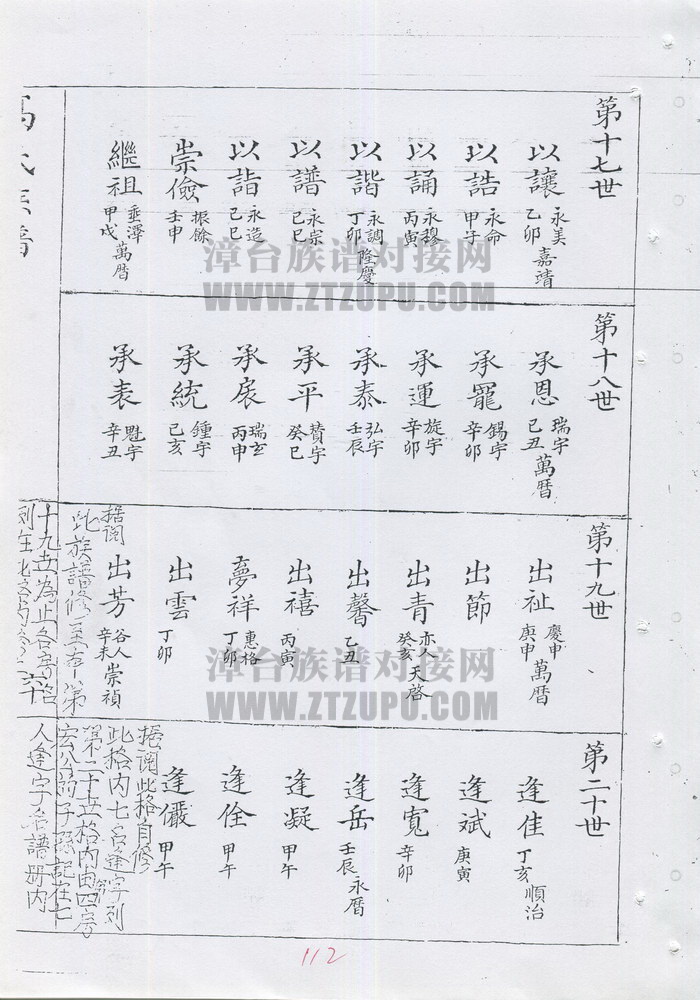 第十七世
以讓 永美 乙卯 嘉靖
以誥 永命 甲子
以誦 永穆 丙寅
以諧 永調 丁卯 隆慶
以譜 永宗 己巳
以詣 永造 己巳
崇儉 振餘 壬申
繼祖 垂澤 甲戌 萬曆
第十八世
承恩 瑞宇 己丑 萬曆
承寵 錫宇 辛卯
承運 旋宇 辛卯
承泰 弘宇 壬辰
承平 贊宇 癸巳
承扆 瑞玄 丙申
承統 鍾宇 己亥
承表 魁宇 辛丑
第十九世
出祉 慶申 庚申 萬曆
出節
出青 亦人 癸亥 天啓
出馨 乙丑
出禧 丙寅
夢祥 惠格 丁卯
出雲 丁卯
出芳 谷人 辛未 崇禎
据阅
此族譜修至右一第
十九世為止各房
列在此
第二十世
逢佳 丁亥 順治
逢斌 庚寅
逢寬 辛卯
逢岳 壬辰 永曆
逢凝 甲午
逢佺 甲午
逢儼 甲午
据阅此格自修
此格内七名逢字列
第二十世格内由四房
玄公的子孫記在七
人逢字名譜册内
氏族譜
漳台族谱对接网
WWW.ZTZUPU.COM
漳台族谱对接网
WWW.ZTZUPU.COM
112